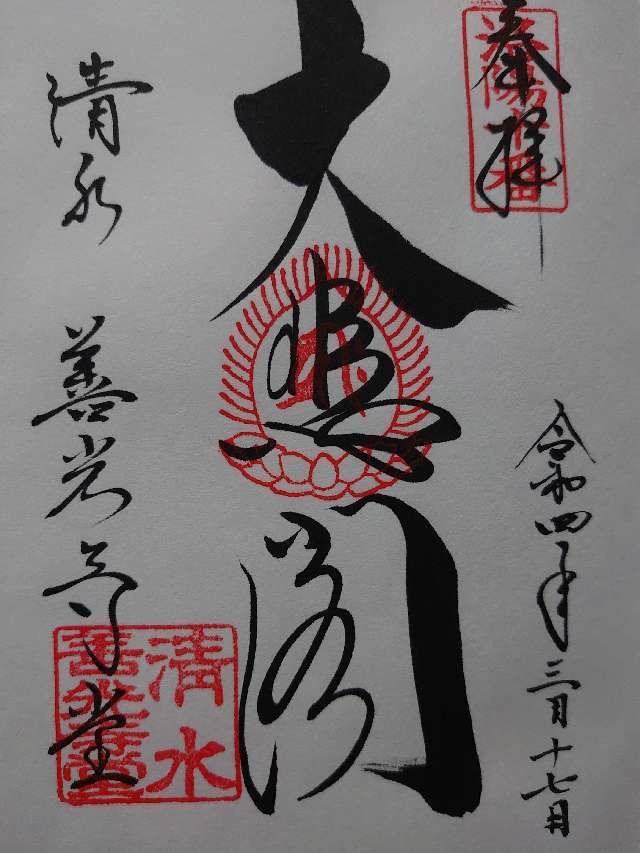 奉拝
洛陽十番
令和四年三月十七日
大悲閣
清水
善光寺堂
清水
善光寺堂